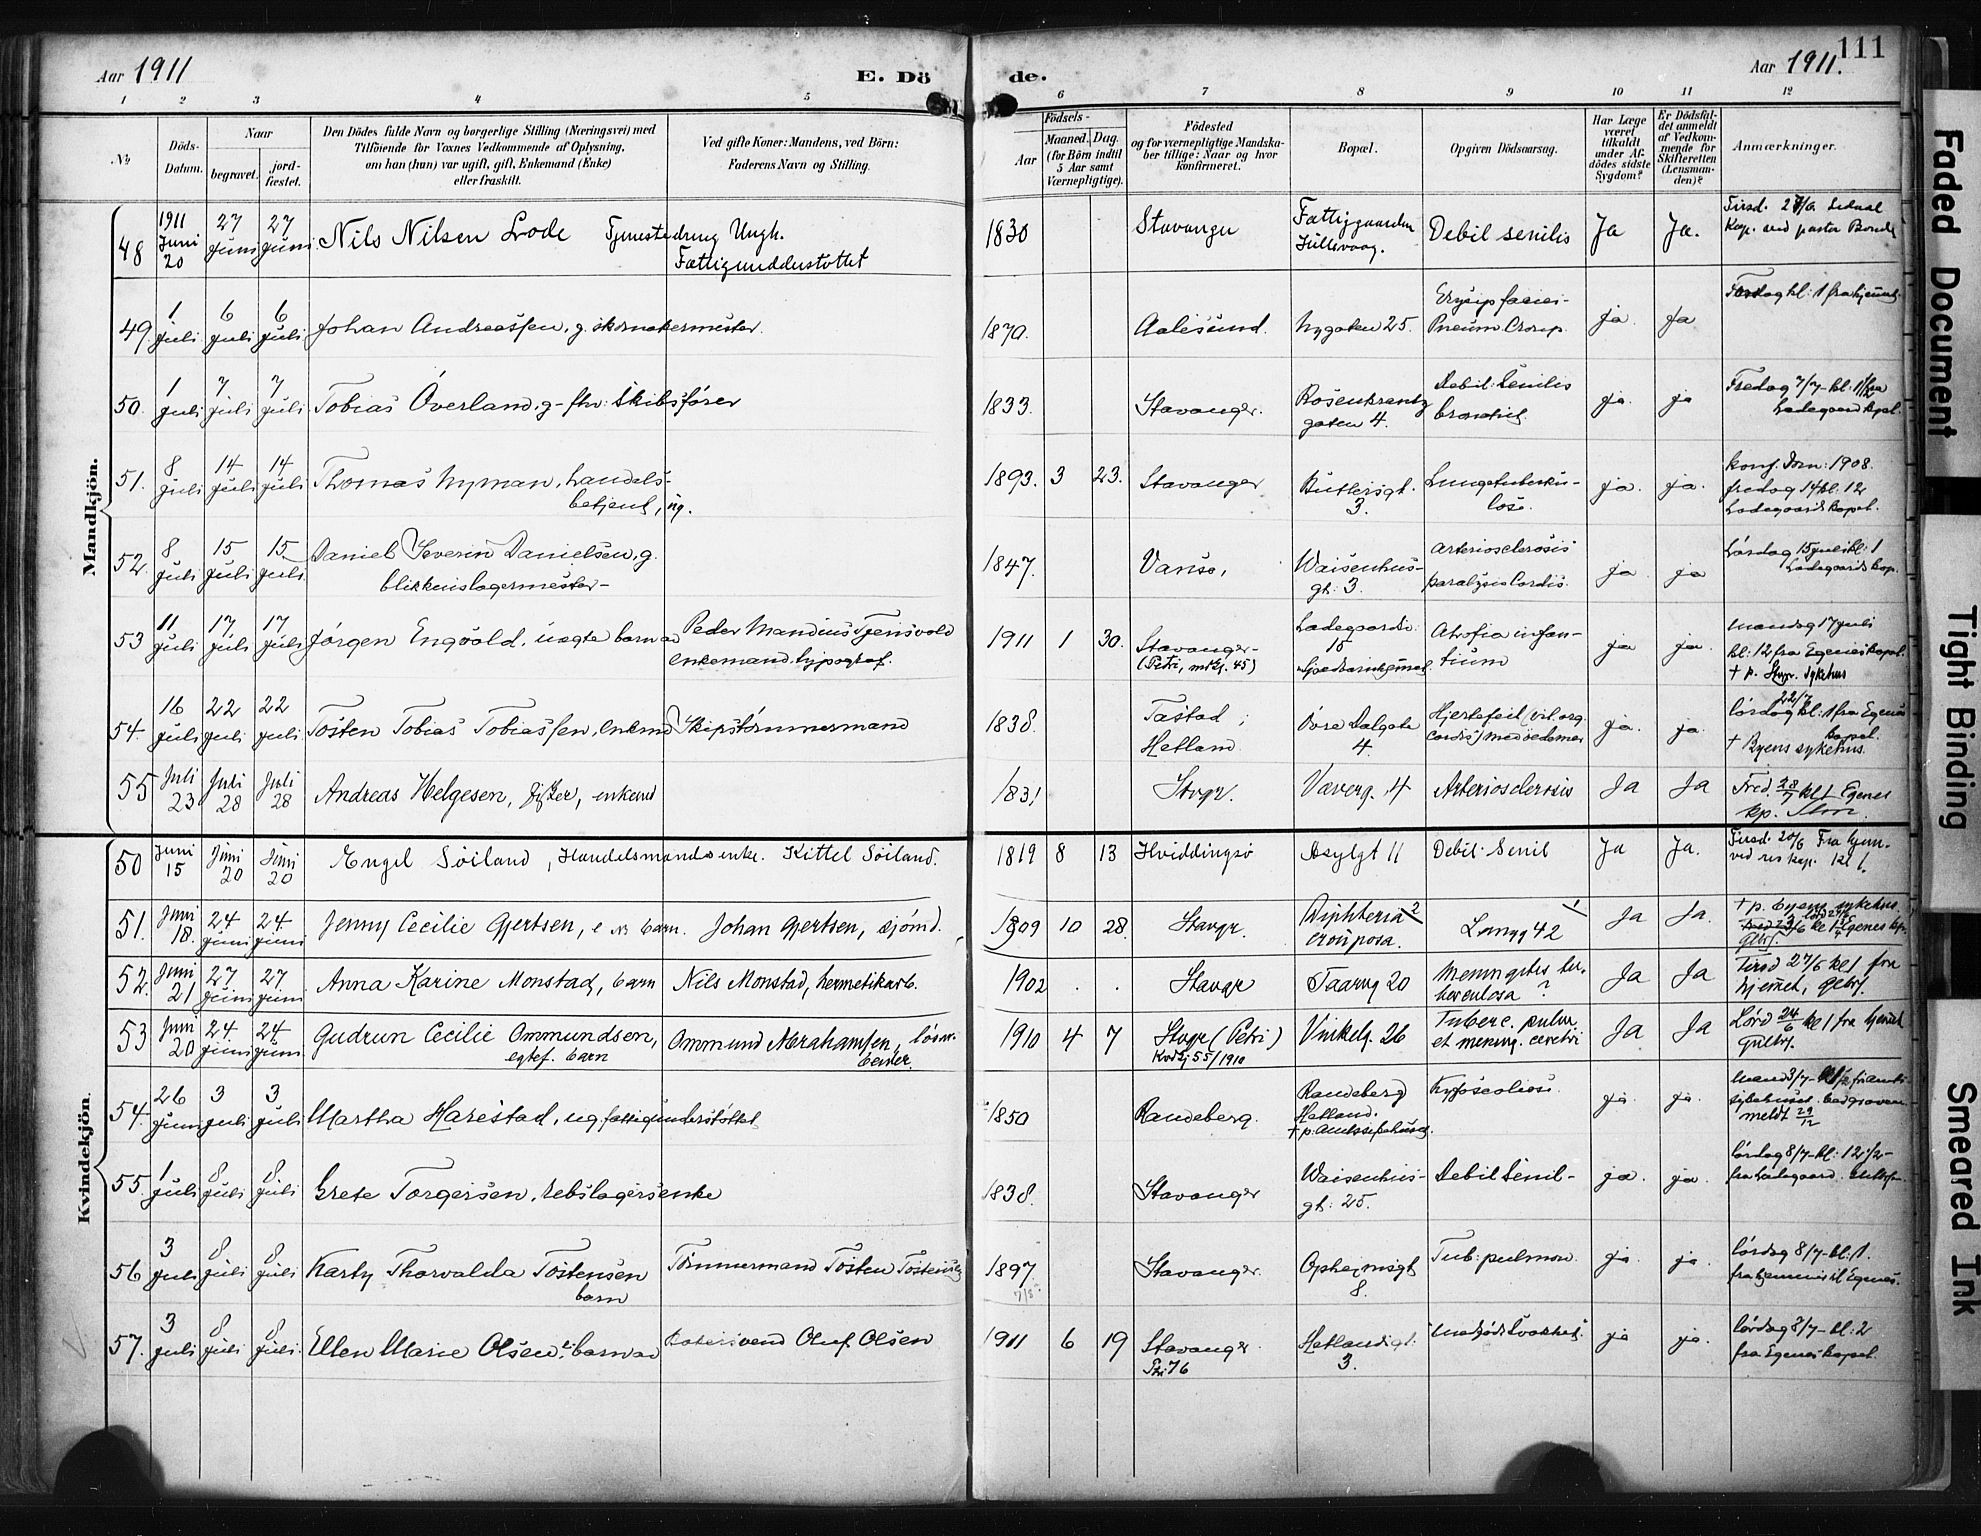 Aar 1911 E. Dö de. Aar 1911. 111
1 2 3 4 5 6 7 8 9 10 11 12
№ Döds-Datum. Naar begravet. jord-fæstet. Den Dödes fulde Navn og borgerlige Stilling (Næringsvei) med Tilföiende for Voxnes Vedkommende af Oplysning, om han (hun) var ugift, gift, Enkemand (Enke) eller fraskilt. Ved gifte Koner: Mandens, ved Börn: Faderens Navn og Stilling. Födsels- Aar Maaned. Dag. (for Börn indtil 5 Aar samt Værnepligtige). Födested og for værnepligtige Mandskaber tillige: Naar og hvor konfirmeret. Bopæl. Opgiven Dödsaarsag. Har Læge været tilkaldt under Afdödes sidste Sygdom? Er Dödsfaldet anmeldt af Vedkommende for Skifteretten (Lensmanden)? Anmærkninger.
Mandkjön.
48 1911 Juni 20 27 Juni 27 Juni Nils Nilsen Lode Tjenestedreng Ungk. Fattigunderstottet 1830 Stavanger Fattiggaarden Debil senilis Ja Ja.
49. 1 Juli 6 Juli 6 Juli Johan Andreassen, g. skomakermester. 1870. Aalesund. Nygaten 25. Erysip faciei- Pneum Croup. ja. ja
50. 1 Juli 7 Juli 7 Juli Tobias Överland, g. fhv: Skibsförer 1833. Stavanger. Rosenkrantz gaten 4. Debil: Senilis ja. ja Fredag 7/7- kl: Ladegaard kpel.
51. 8 Juli 14 Juli 14 Juli Thomas Nyman, handels-betjent, ug. 1893. 3 23. Stavanger Buttersgt. 3. Lungetuberku-lose. ja. ja. konf. Dom: 1908. fredag 14 kl. 12 Ladegaards kapel.
52. 8 Juli 15 Juli 15 Juli Daniel Severin Danielsen, g. blikkenslagermester- 1847. Vanse, Waisenhus-gt: 3. Arteriosclerosis paralysis Cordis. ja ja Lördag 15 Juli kl: 1 Ladegaards kap.
53 11 Juli 17 Juli 17 Juli Jörgen Engvold, uægte barn av Peder Mandius Tjensvold enkemand, typograf. 1911 1 30. Stavanger- (Petri, mtkj. 45) Ladegaardsv: 15 Atrofia infan-tium ja ja. Mandag 17 Juli kl: 12 fra Egenes kapel. † p. Stvgr. Sykehus
54. 16 Juli 22 Juli 22 Juli Tosten Tobias Tobiassen, enkmd Skipstömmermand 1838. Tastad; Hetland. Övre Dalgate 4. Hjertefeil (vit. org. Cordis) med oedemer ja. ja. 22/7 lördag kl: 1 fra Egenes kapel. † Byens sykehus.
55 Juli 23 Juli 28 Juli 28 Andreas Helgesen, fisker, enkemd 1831 Stvgr. Væverg. 4 Arteriosclerosis Ja Ja Fred. 28/7 kl 1 Egenes kp.
Kvindekjön.
50 Juni 15 Juni 20 Juni 20 Engel Söiland, Handelsmandsenke. Kittel Söiland. 1819 8 13 Hviddingsö Asylgt 11 Debil. Senil Ja Ja. Tirsd. 20/6 Fra hjem. ved res kap. Kl 1.
51. Juni 18. 24 Juni 24 Juni Jenny Cecilie Gjertsen, barn. Johan Gjertsen, sjömd. 1909 10 28. Stavgr. Diphteria crouposa. 2 Langg 42 1 Ja Ja. † p. Byens sykehus.
52. Juni 21 27 Juni 27 Juni Anna Karine Monstad, barn Nils Monstad, hermetikarb. 1902 . . Stavgr Taarng 20 Meningitis tu-berculosa ? Ja Ja Tirsd 27/6 kl 1 fra hjemmet,
53 Juni 20 24 Juni 24 Juni Gudrun Cecilie Ommundsen, egtef. barn Ommund Abrahamsen, 1910 4 7 Stvgr (Petri) Kvdkj 55/1910 Vinkelg. 26 Tuberc. pulm. et mening. cerebri Ja Ja Lörd 24/6 kl 1 fra hjemmet
54. 26 Juni 3 Juli 3 Juli Martha Harestad, ug. fattigunderstöttet 1850 Randeberg. Randeberg Hetland. † p. Amtssykehuset. Kyfoscoliose. ja. ja. meldt 29/12
55. 1 Juli 8 Juli 8 Juli Grete Torgersen, rebslagersenke 1838. Stavanger Waisenhus-gt: 25. Debil Senil- ja. ja. lördag 8/7- kl: 12 1/2- fra Ladegaard.
56 3 Juli 8 Juli 8 Juli Karty Thorvalda Tostensen barn Tömmermand Tosten Tostensen 1897. 7/8 Stavanger. Opheimsgt 8. Tub: pulmon. ja ja. lördag 8/7- kl: 1. fra hjemmet til Egenes.
57. 3 Juli 8 Juli 8 Juli Ellen Marie Olsen, barn av Olaf Olsen 1911 6 19 Stavanger 76 Hetlandsgt. 3. Medfödt Svakhet. ja ja. lördag 8/7- kl: 2 fra Egenes kapel.
Faded Document
Tight Binding
Smeared Ink